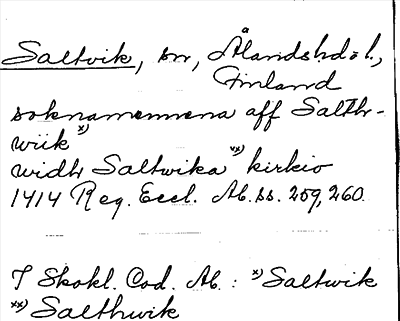 Saltvik, sn, Ålandshd ö l.,
Finland
soknamennena aff Salthr-
wiik x)
widh Saltwika xx) kirkio
1414 Reg. Eccl. Ab. ss. 259, 260.
I Skokl. Cod. Ab. : x) Saltwik
xx) Salthwik